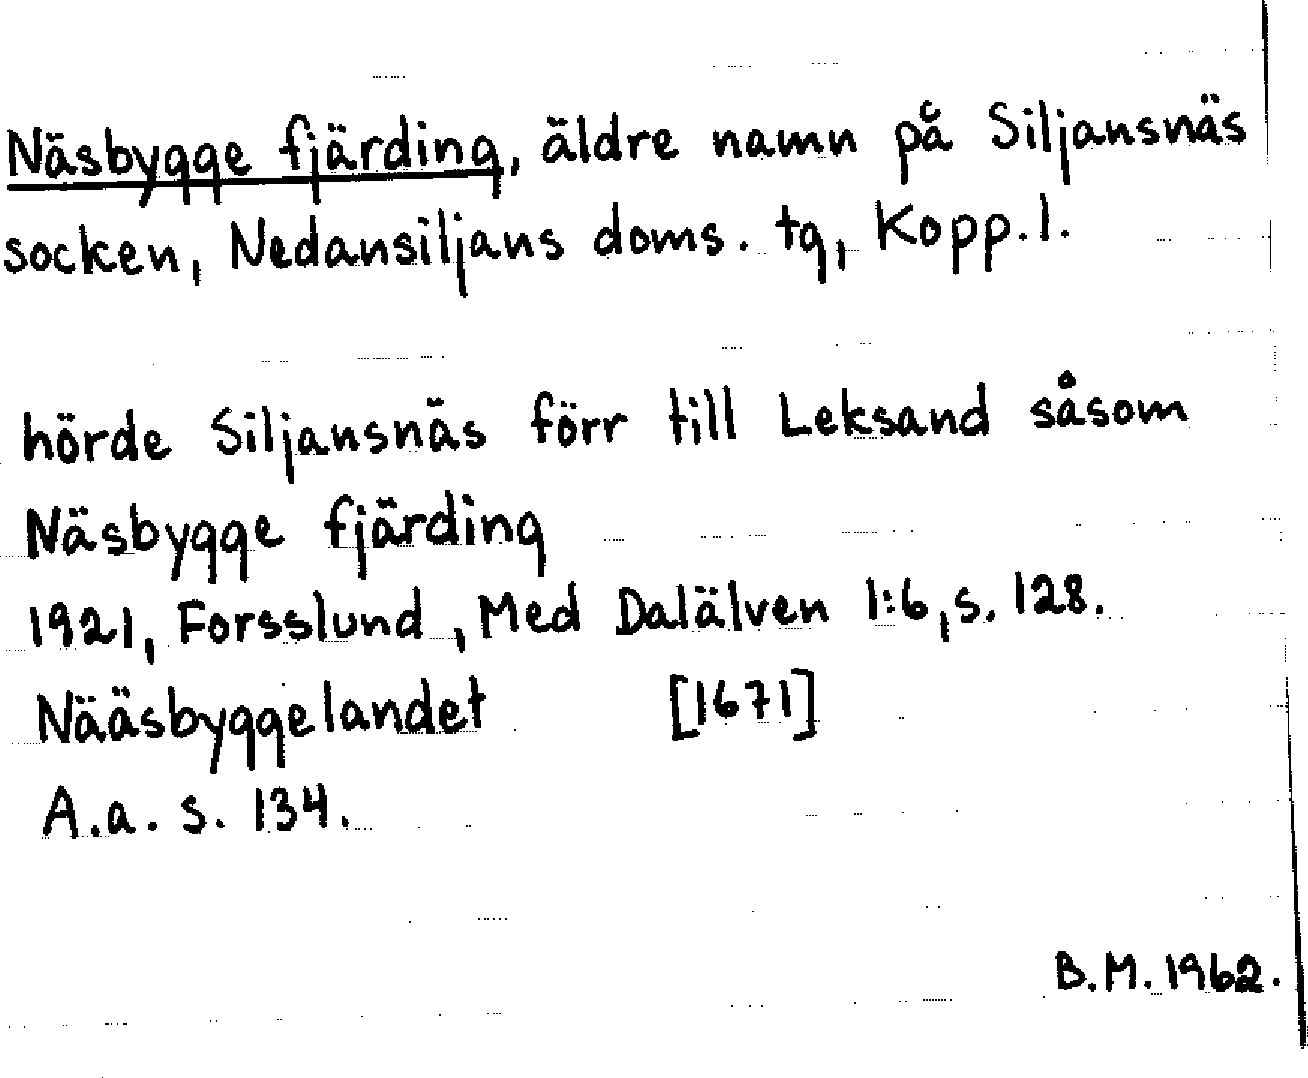 Näsbygge fjärding, äldre namn på Siljansnäs
socken, Nedansiljans doms. tg, Kopp.l.
hörde Siljansnäs förr till Leksand såsom
Näsbygge fjärding
1921, Forsslund, Med Dalälven 1:6, s. 128.
Nääsbyggelandet [1671]
A.a. s. 134.
B.M. 1962.